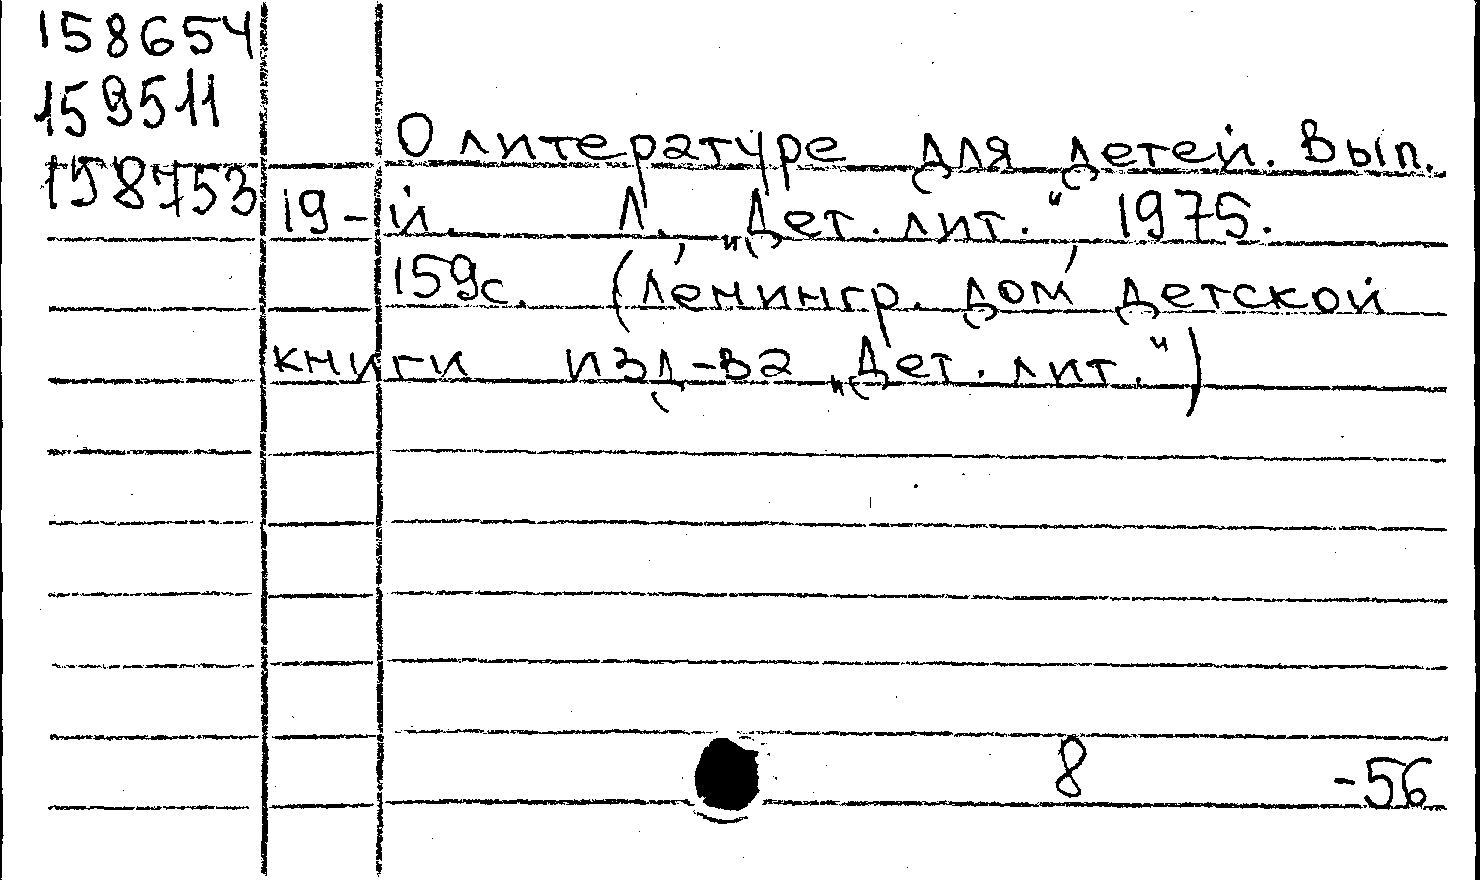 158654
159511
О литературе для детей. Вып.
158753
19-й. Л., „Дет. лит.“ 1975.
159с. (Ленингр. дом детской
книги изд-ва „Дет. лит.“)
8 -56